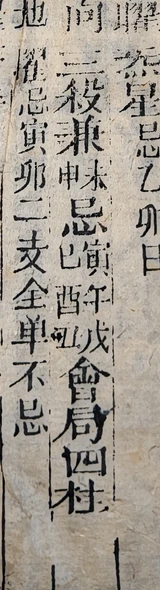 曜炁星忌乙卯日
向三殺兼未申忌寅午戌巳酉丑會局四柱
地曜忌寅卯二支全单不忌